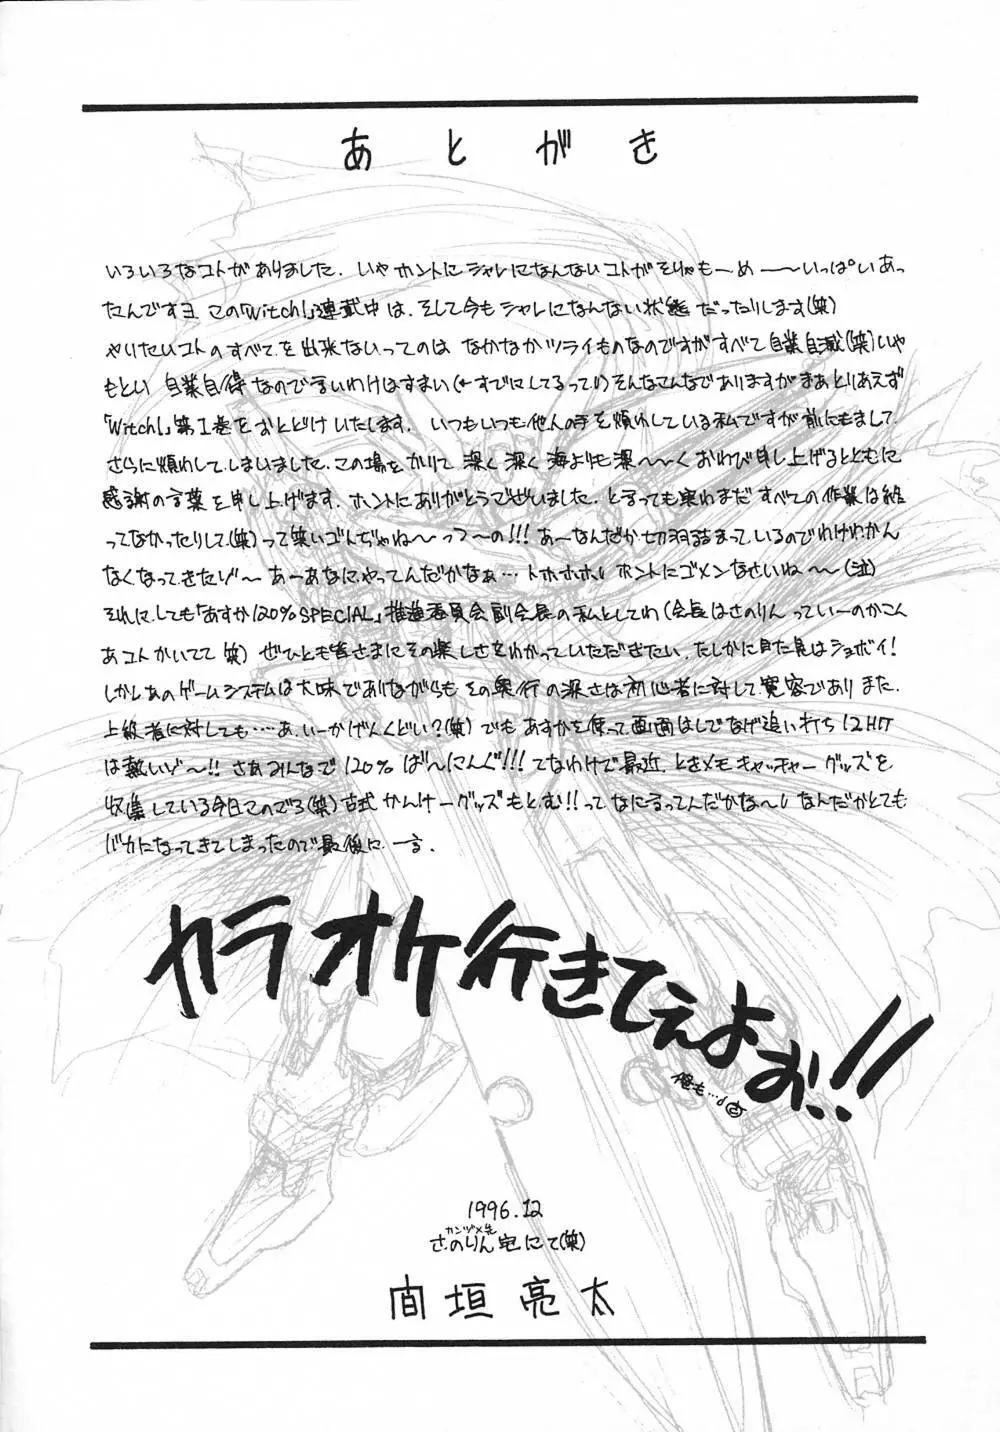 あとがき
いろいろなコトがありました. いやホントにシャレになんないコトがそりゃもーめー〜いっぱいあっ
たんですヨ この「Witch!」連載中は、そして今もシャレになんない状態だったりします(笑)
やりたいコトのすべてを出来ないってのはなかなかツライものなのですがすべて自業自滅(笑)いや
もとい 自業自得なので言いわけはすまい(←すでにしてるって!)そんなこんなでありますがまあとりあえず
「Witch!」第1巻をおとどけいたします. いつもいつも他人の手を煩わしている私ですが前にもまして
さらに煩わしてしまいました. この場をかりて深く深く海よりも深〜〜くおわび申し上げるとともに
感謝の言葉を申し上げます. ホントにありがとうございました. と言っても実わまだすべての作業は終
ってなかったりして(笑)って笑いゴトぢゃね〜って〜の!!! あーなんだか切羽詰まっているのでわけわかん
なくなってきたゾ〜 あーあなにやってんだかなぁ…トホホホ ホントにゴメンなさいね〜(泣)
それにしても「あすか120%SPECIAL」推進委員会副会長の私としてわ(会長はさのりんってい〜のかこん
なコトかいてて 笑) ぜひとも皆さまにその楽しさをわかっていただきたい. たしかに見た目はショボイ!
しかしあのゲームシステムは大味でありながらもその奥行の深さは初心者に対して寛容でありまた.
上級者に対しても……あ、いーかげんくどい?(笑) でもあすかを使って画面はしでなげ追い打ち12Hit
は熱いゾ〜!! さあみんなで120%ば〜にんぐ!!! てなわけで最近、ときメモキャッチャーグッズを
収集している今日このごろ(笑)古式かんけーグッズもとむ!!ってなにゆってんだかな〜 なんだかとても
バカになってきてしまったので最後に一言.
カラオケ行きてえよぉ!!
俺も…
1996.12
カンヅメ先
さのりん宅にて(笑)
間垣亮太